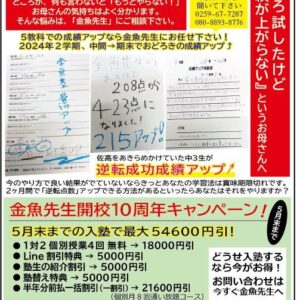 ろ試したけど
が上がらない』というお母さんへ
ところが、何も言わないと「もっとやらない！」
お母さんの気持ちはよく分かります。
そんな悩みは、『金魚先生』にご相談下さい。
聞いて下さい
0259-67-7287
080-8893-8776
5教科での成績アップなら金魚先生にお任せ下さい！
2024年2学期、中間→期末でおどろきの成績アップ
208点が
423点に
なりました！
215アップ!
佐高をあきらめかけていた中3生が
逆転成功成績アップ
今のやり方で良い結果がでていないならきっとあなたの学習法は賞味期限切れです。
2ヶ月間で「逆転点数」アップできる方法があるといったらあなたはそれをやりますか？
金魚先生開校10周年キャンペーン！
5月末まで
5月末までの入塾で最大54600円引！
●1対2個別授業4回 無料 → 18000円引
●Line割引特典 → 5000円引
●塾生の紹介割引 → 5000円引
●塾替え特典 → 5000円引
●半年分前払一括割引(一割引) → 21600円引
(個別月8回通い放題コース)
どうせ入塾する
なら今がお得！
お問い合わせは
今すぐ金魚先生へ